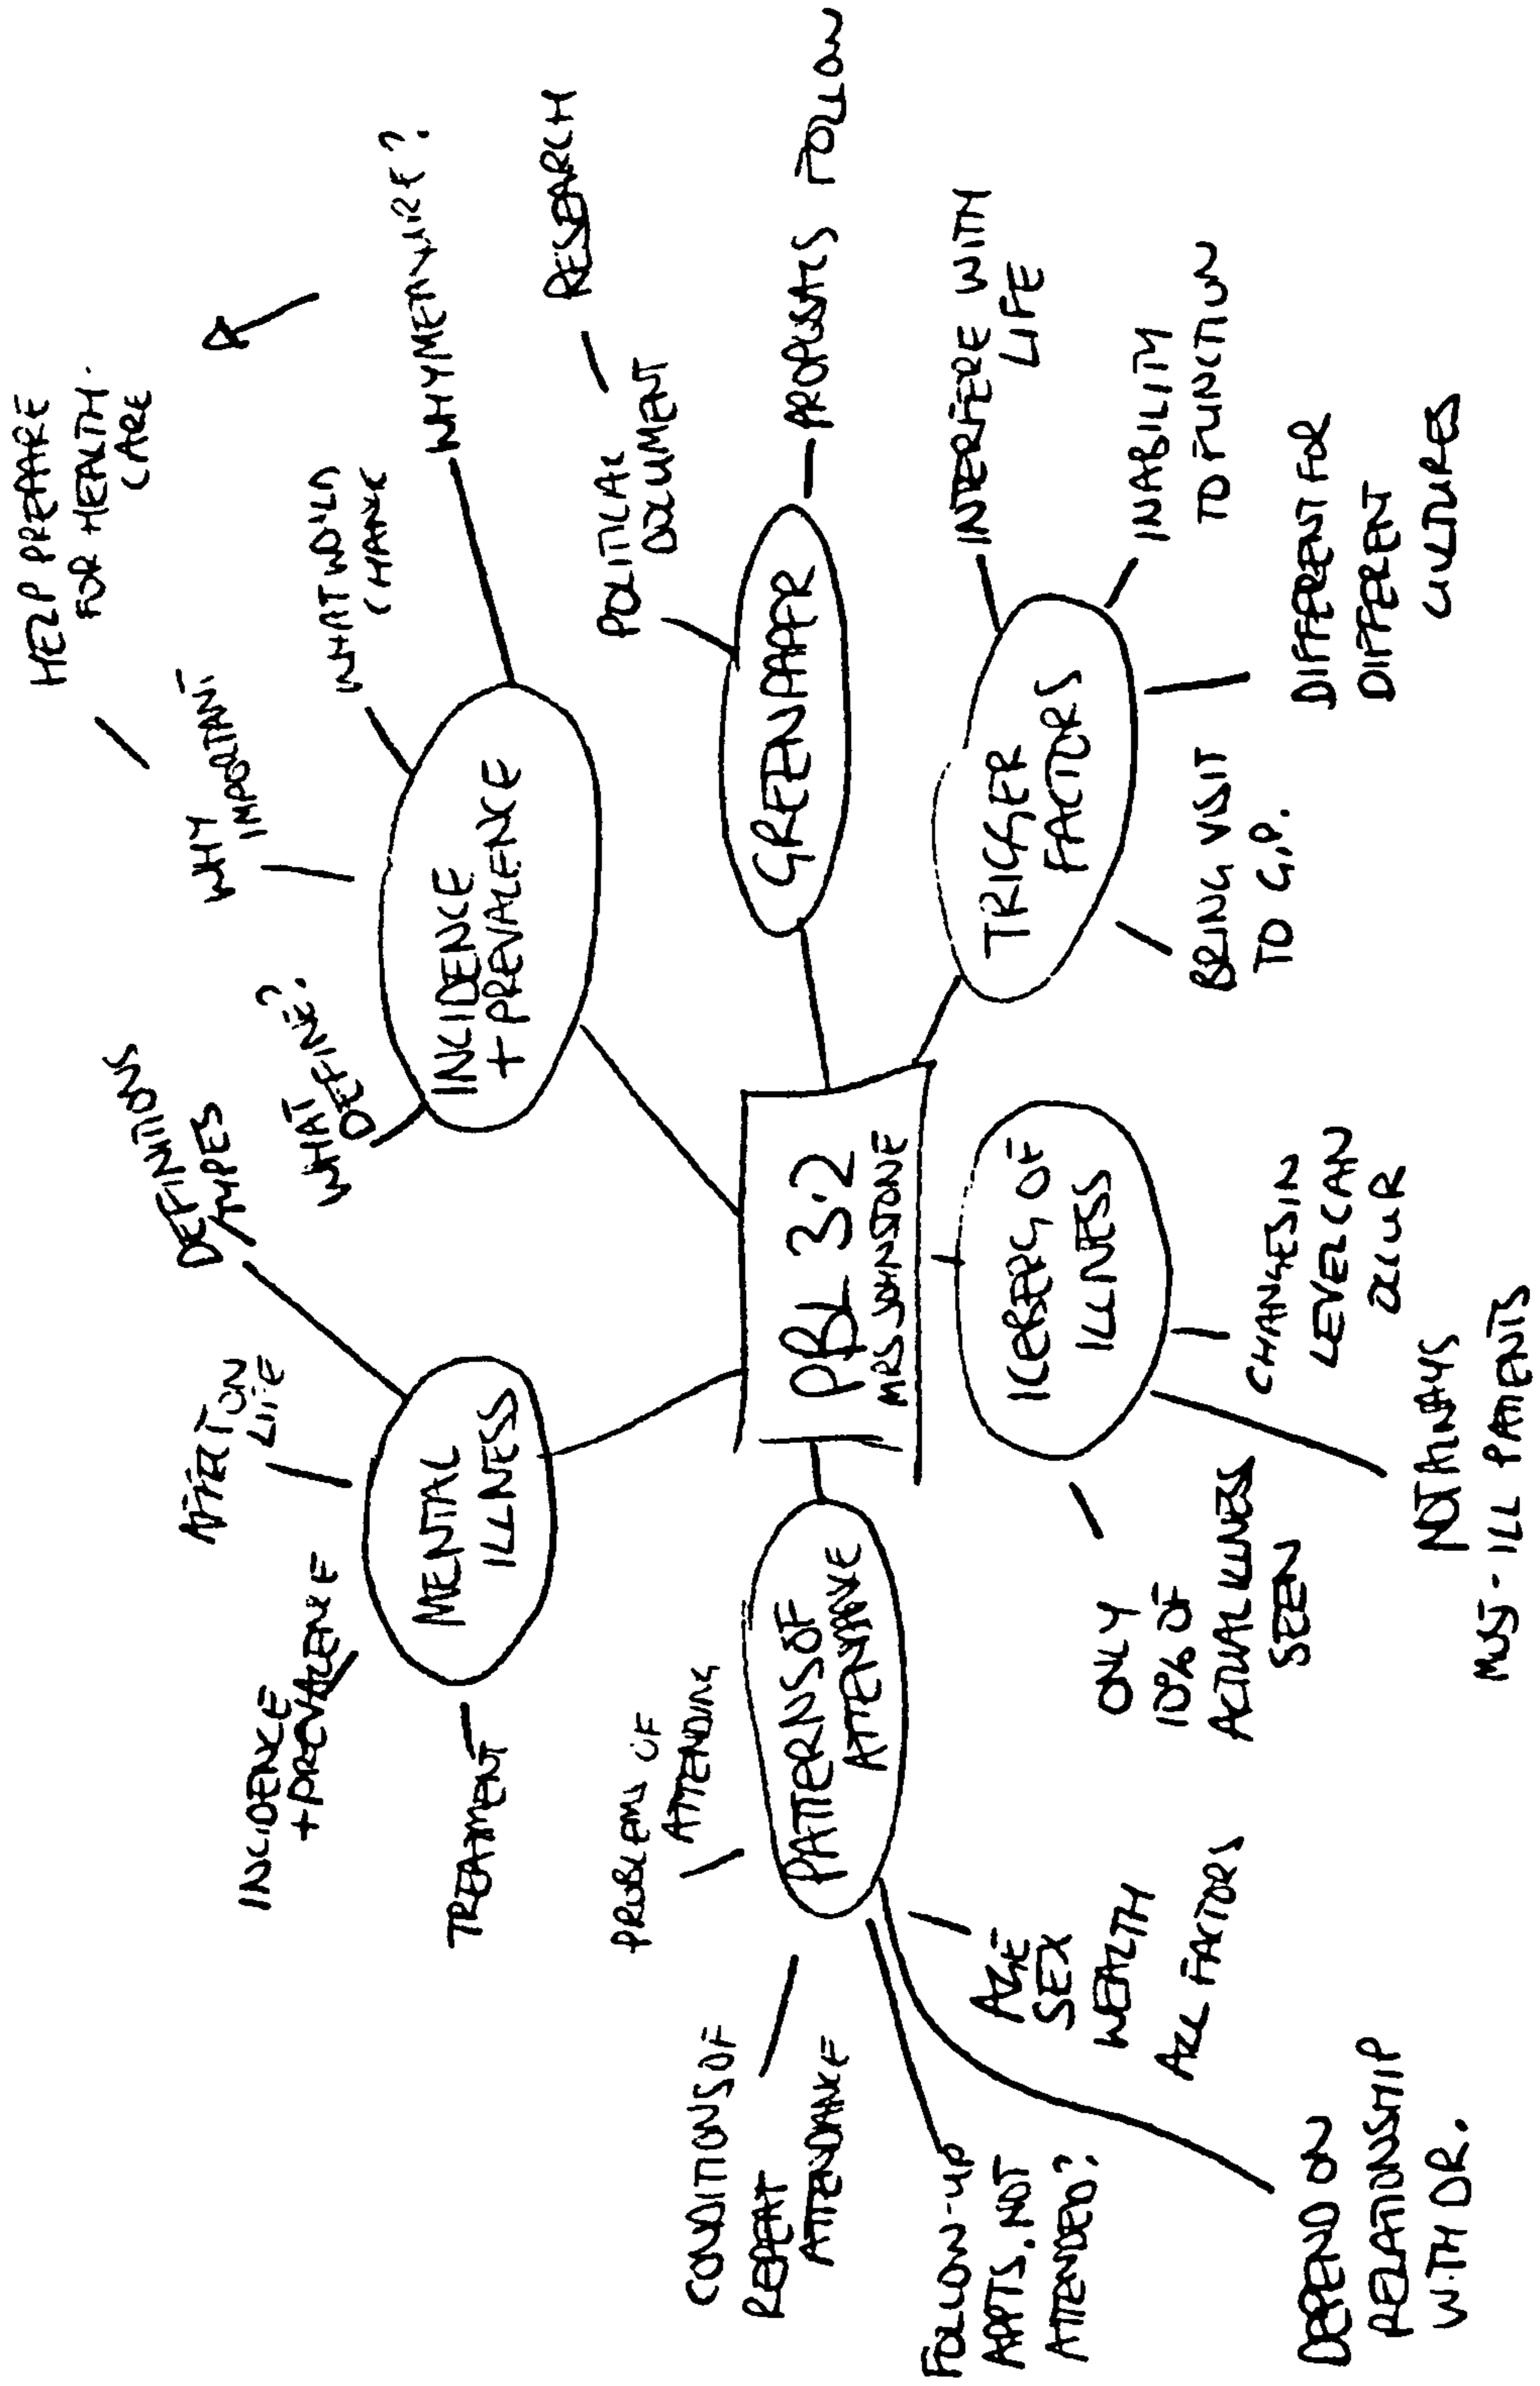 PBL 3.2
MRS JOHNSTONE
MENTAL
ILLNESS
TREATMENT
INCIDENCE
+ PREVALENCE
AFFECT ON
LIFE
DEFINITIONS
TYPES
INCIDENCE
+ PREVALENCE
WHAT
DEFINE?
WHY
IMPORTANT
HELP PREPARE
FOR HEALTH
CARE
WHAT WO'LD
CHANGE
WHY MEASURE?
GREEN PAPER
POLITICAL
DOCUMENT
RESEARCH
PROPOSALS FOLLOW
TRIGGER
FACTORS
INTERFERE WITH
LIFE
INABILITY
TO FUNCTION
DIFFERENT FOR
DIFFERENT
CULTURES
BRING VISIT
TO G.P.
ICEBERG OF
ILLNESS
CHANGES IN
LEVEL CAN
OCCUR
NOT ALWAYS
MOS - ILL PATIENTS
ONLY
10% OF
ACTUAL ILLNESS
SEEN
PATTERNS OF
ATTENDANCE
PROBLEMS OF
ATTENDING
CONDITIONS OF
REPEAT
ATTENDANCE
FOLLOW-UP
APPTS. NOT
ATTENDED?
DEPEND ON
RELATIONSHIP
WITH DR.
AGE
SEX
WEALTH
ALL FACTORS